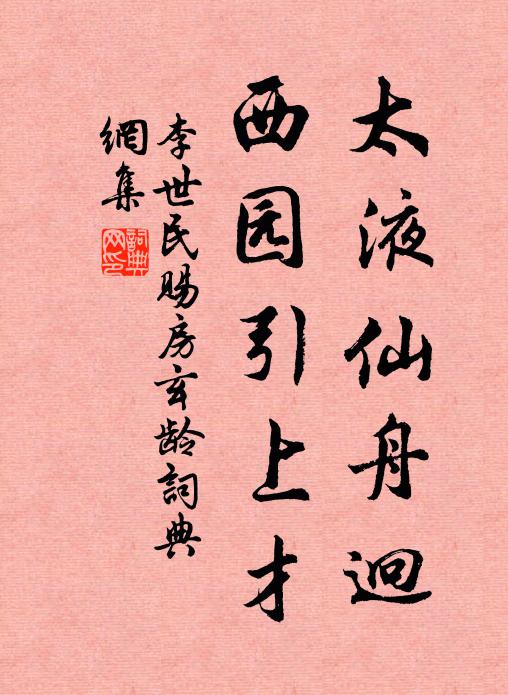 太液仙舟迥
西园引上才
李世民赐房玄龄詞典
網集
詞典
网印